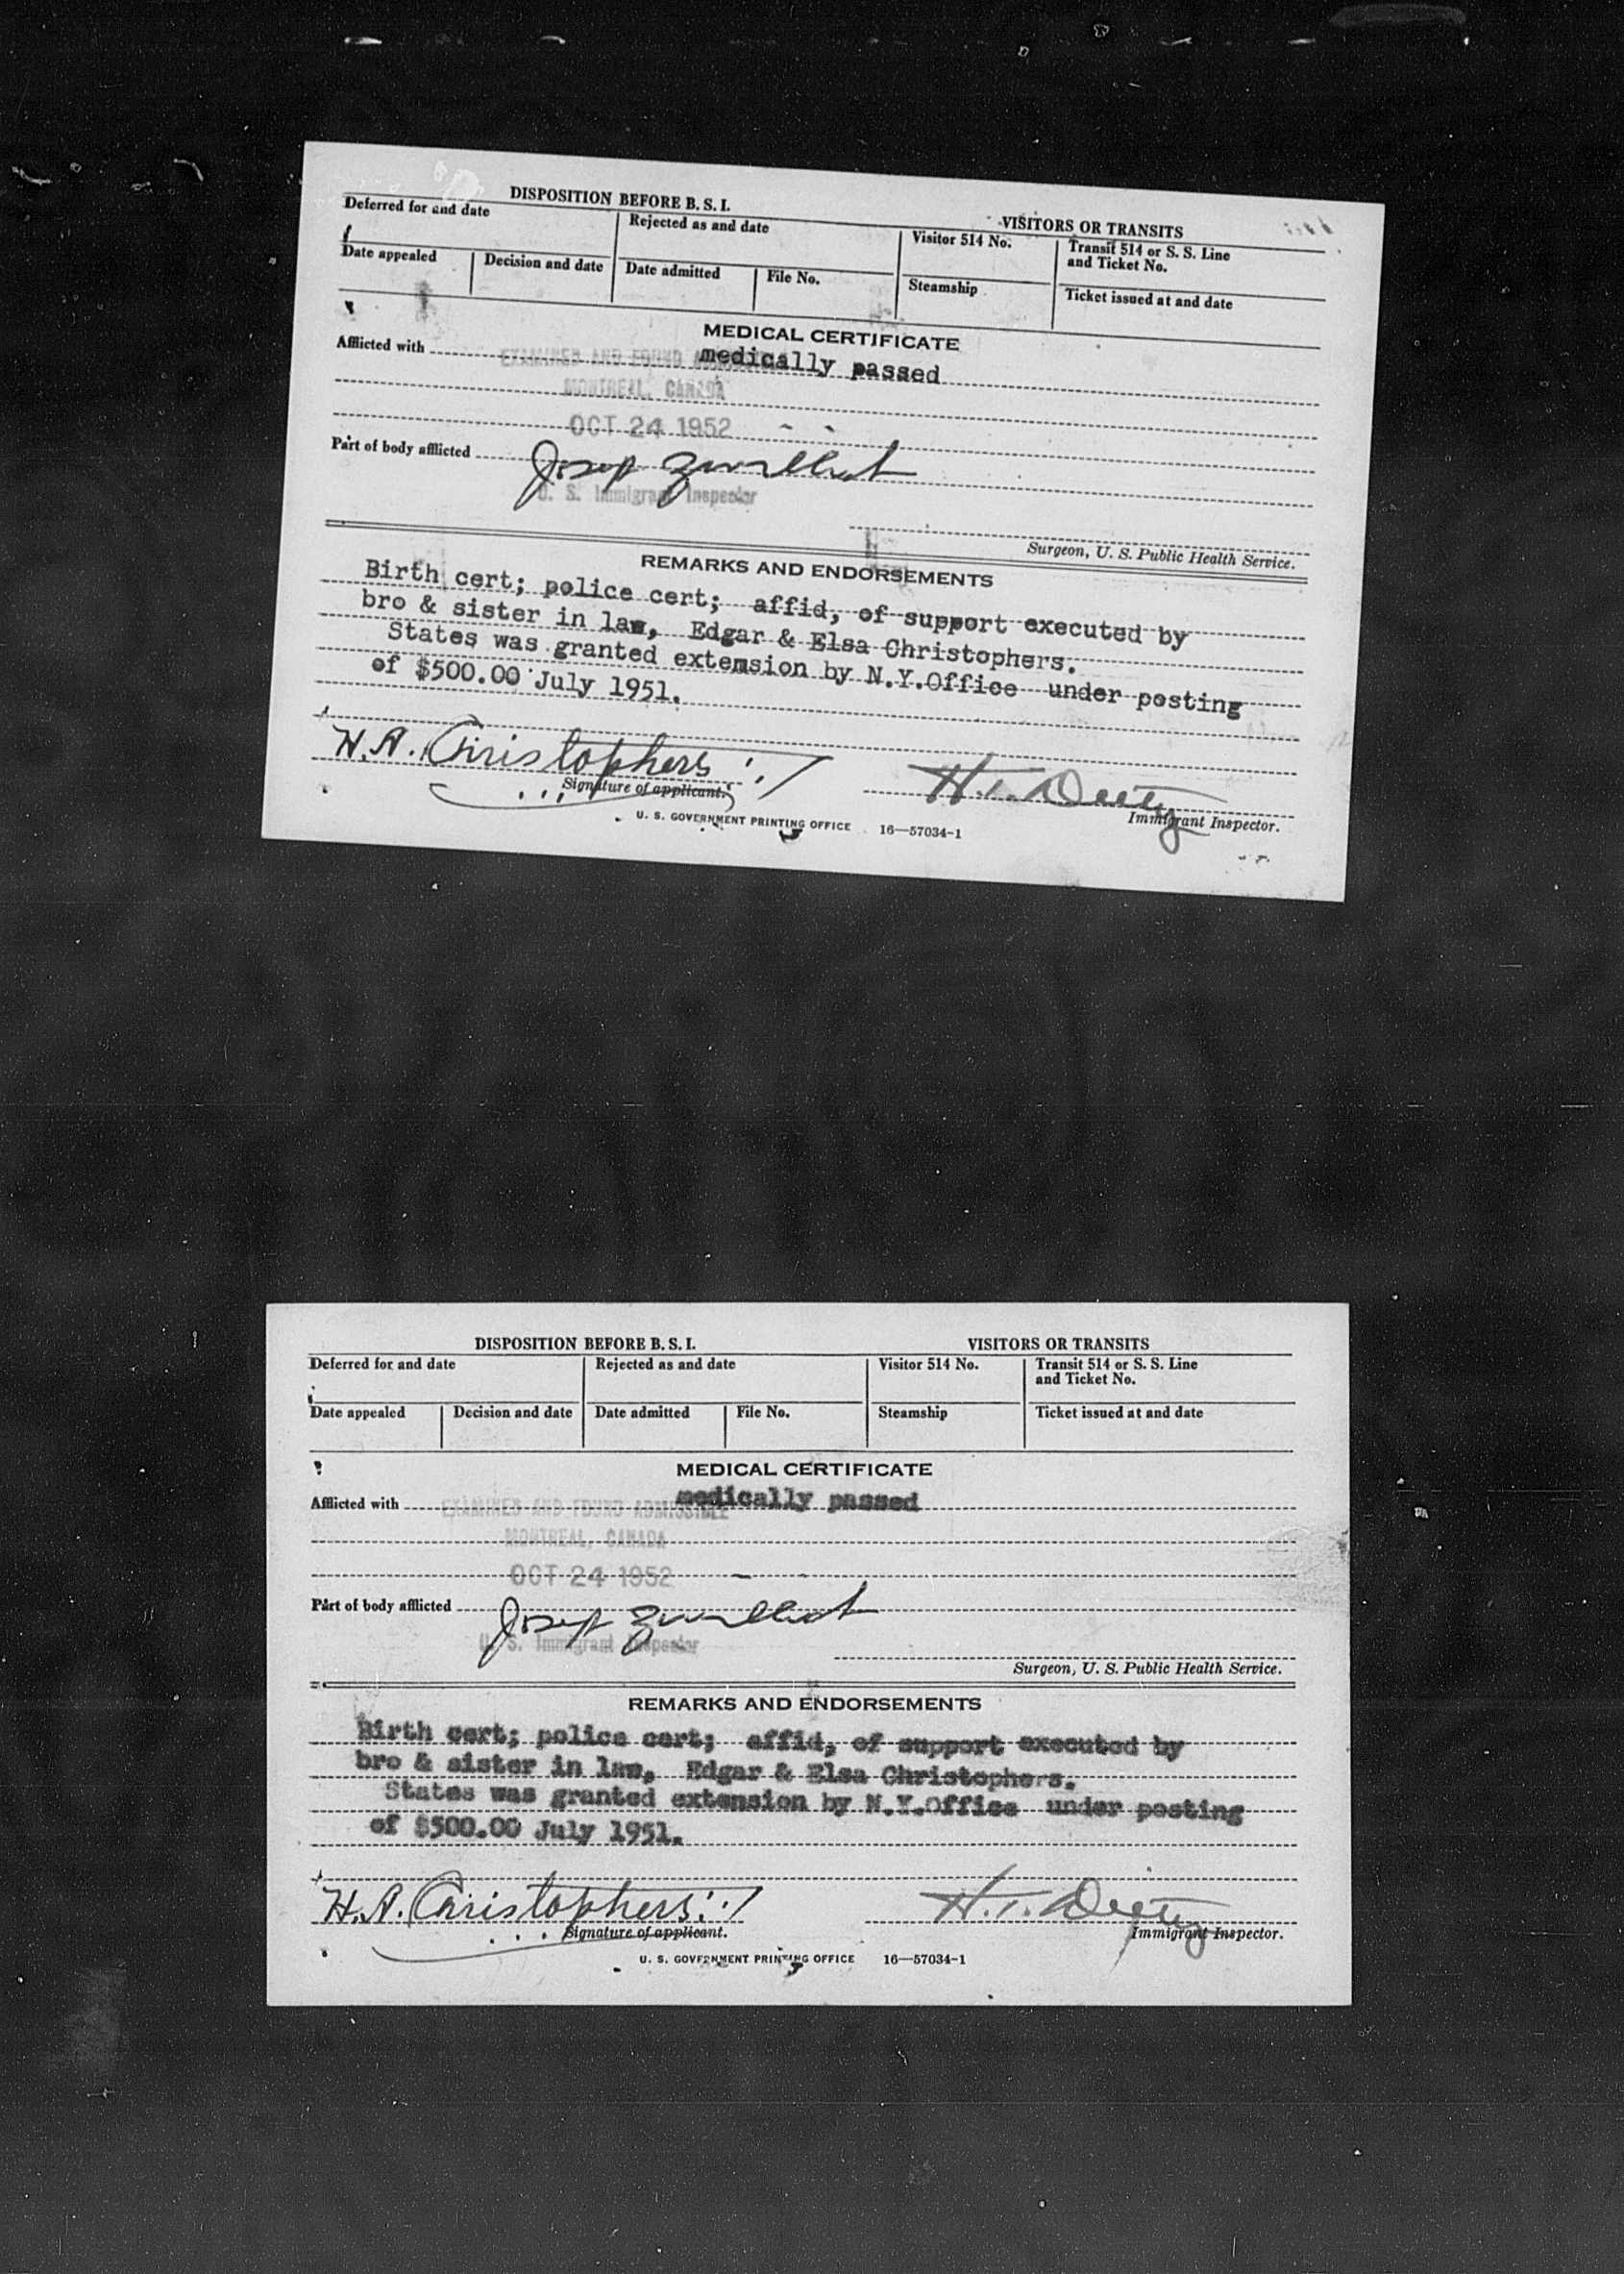 DISPOSITION BEFORE B. S. I.
VISITORS OR TRANSITS
Deferred for and date
Rejected as and date
Visitor 514 No.
Transit 514 or S. S. Line
and Ticket No.
Date appealed
Decision and date
Date admitted
File No.
Steamship
Ticket issued at and date
MEDICAL CERTIFICATE
Afflicted with
medically passed
EXAMINED AND FOUND
MONTREAL, CANADA
OCT 24 1952
Part of body afflicted
Josep
U. S. Immigrant Inspector
Surgeon, U. S. Public Health Service.
REMARKS AND ENDORSEMENTS
Birth cert; police cert; affid, of support executed by
bro & sister in law, Edgar & Elsa Christophers.
States was granted extension by N.Y.Office under posting
of $500.00 July 1951.
H. A. Christophers
H. T.
Signature of applicant.
Immigrant Inspector.
U. S. GOVERNMENT PRINTING OFFICE 16—57034-1
DISPOSITION BEFORE B. S. I.
VISITORS OR TRANSITS
Deferred for and date
Rejected as and date
Visitor 514 No.
Transit 514 or S. S. Line
and Ticket No.
Date appealed
Decision and date
Date admitted
File No.
Steamship
Ticket issued at and date
MEDICAL CERTIFICATE
Afflicted with
medically passed
EXAMINED AND FOUND ADMISSIBLE
MONTREAL, CANADA
OCT 24 1952
Part of body afflicted
Josep
U. S. Immigrant Inspector
Surgeon, U. S. Public Health Service.
REMARKS AND ENDORSEMENTS
Birth cert; police cert; affid, of support executed by
bro & sister in law, Edgar & Elsa Christophers.
States was granted extension by N.Y.Office under posting
of $500.00 July 1951.
H. A. Christophers
H. T.
Signature of applicant.
Immigrant Inspector.
U. S. GOVERNMENT PRINTING OFFICE 16—57034-1